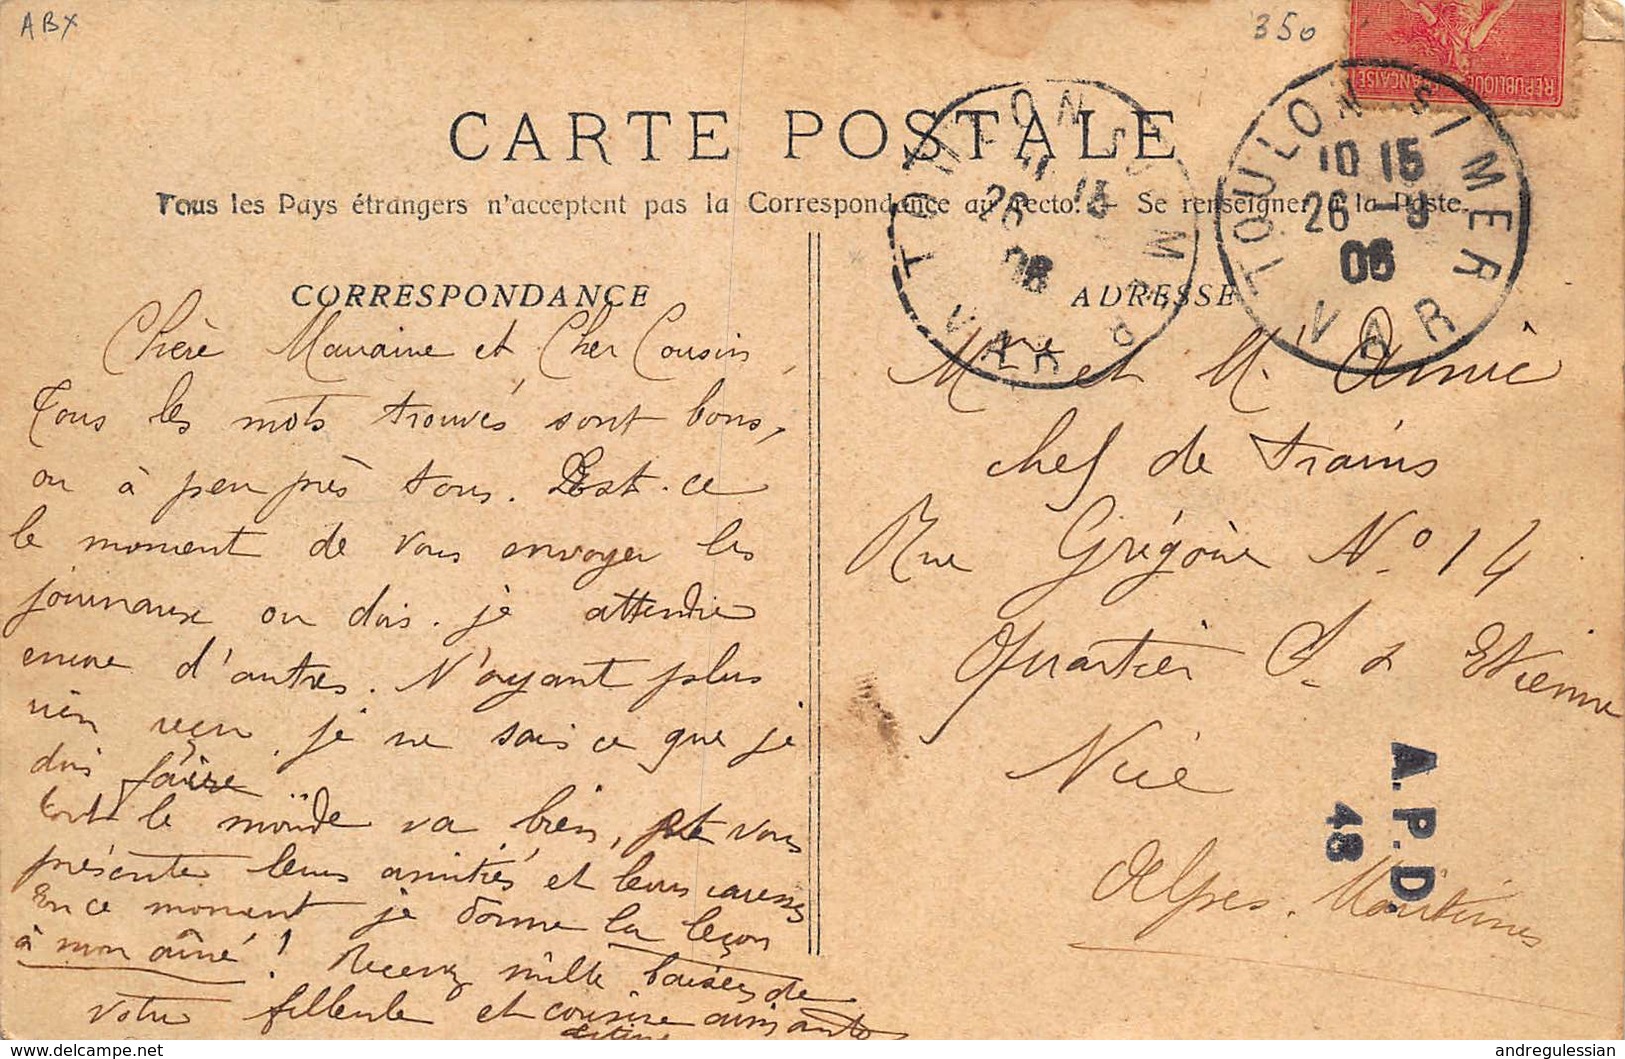 ABX
350
RÉPUBLIQUE FRANÇAISE
CARTE POSTALE
Tous les Pays étrangers n'acceptent pas la Correspondance au recto. — Se renseigner à la Poste.
TOULON S/ MER
11 15
26
08
VAR
TOULON S/ MER
10 15
26 - 9
08
VAR
CORRESPONDANCE
Chère Marraine et Cher Cousin,
Tous les mots trouvés sont bons,
ou à peu près tous. Est-ce
le moment de vous envoyer les
journaux ou dois-je attendre
encore d'autres. N'ayant plus
rien reçu, je ne sais ce que je
dois faire
tout le monde va bien, et vous
présente leurs amitiés et leurs caresses
En ce moment je donne la leçon
à mon aîné! Recevez mille baisers de
votre filleule et cousine aimante
ADRESSE
Mme et M. Amic
chef de trains
Rue Grégoire No 14
Quartier St Etienne
Nice
Alpes-Maritimes
A.P.D.
48
andregulessian